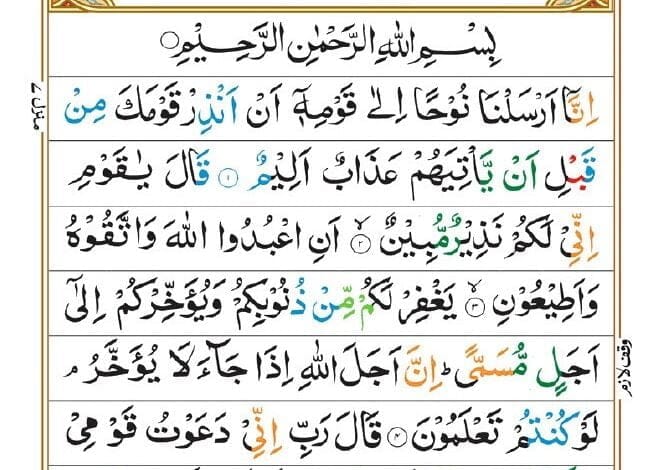 بِسْمِ اللهِ الرَّحْمٰنِ الرَّحِيْمِ
اِنَّاۤ اَرْسَلْنَا نُوْحًا اِلٰى قَوْمِهٖۤ اَنْ اَنْذِرْ قَوْمَكَ مِنْ
قَبْلِ اَنْ يَّاْتِيَهُمْ عَذَابٌ اَلِيْمٌ ۝۱ قَالَ يٰقَوْمِ
اِنِّىْ لَكُمْ نَذِيْرٌ مُّبِيْنٌ ۙ۝۲ اَنِ اعْبُدُوا اللهَ وَاتَّقُوْهُ
وَاَطِيْعُوْنِ ۙ۝۳ يَغْفِرْ لَكُمْ مِّنْ ذُنُوْبِكُمْ وَيُؤَخِّرْكُمْ اِلٰۤى
اَجَلٍ مُّسَمًّى ؕ اِنَّ اَجَلَ اللهِ اِذَا جَآءَ لَا يُؤَخَّرُ ۘ
لَوْ كُنْتُمْ تَعْلَمُوْنَ ۝۴ قَالَ رَبِّ اِنِّىْ دَعَوْتُ قَوْمِىْ
منزل ۷
وقف لازم